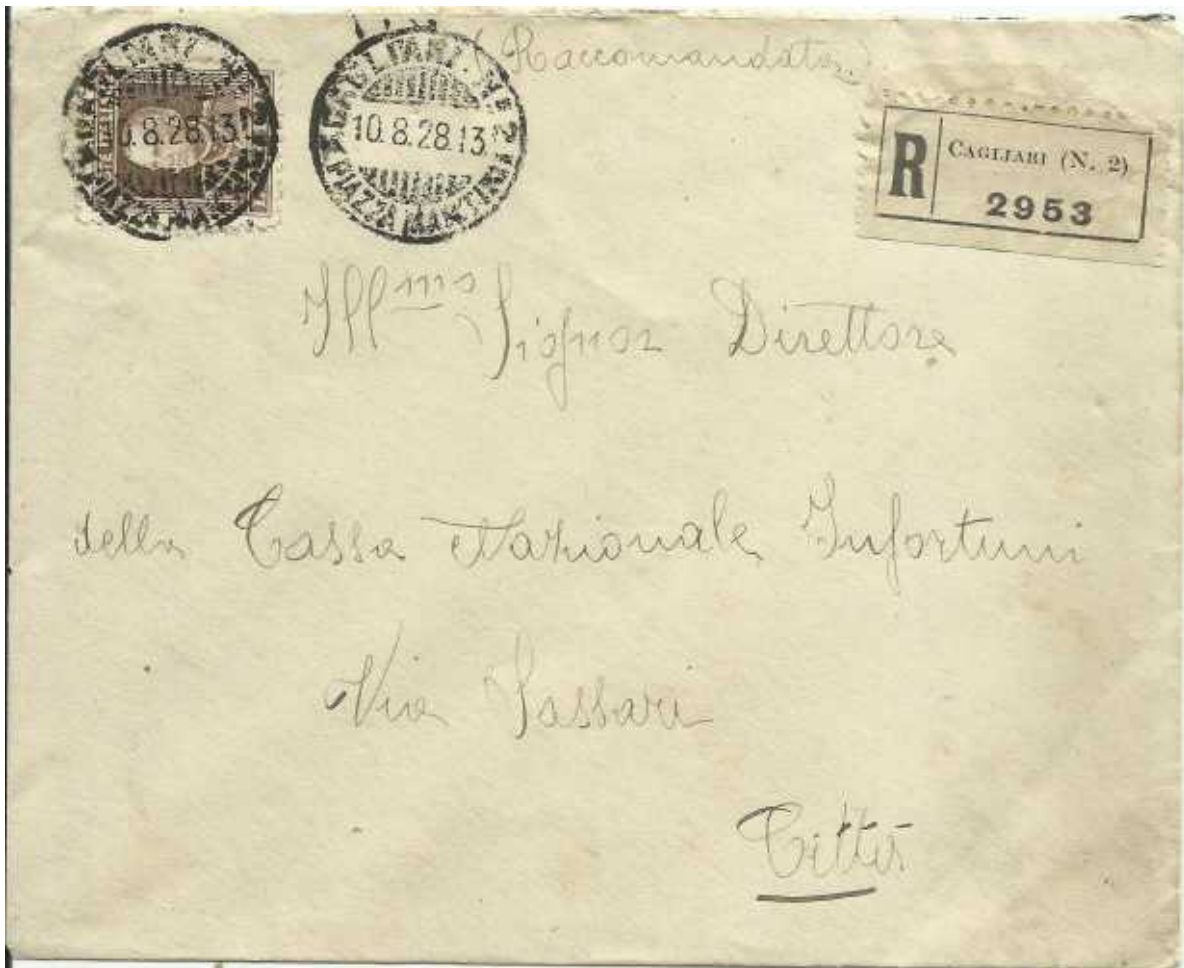 (Raccomandata)
CAGLIARI. N. 2
10.8.28.13
PIAZZA MARTIRI
8.28.13
R
CAGLIARI (N. 2)
2953
Illmo Signor Direttore
della Cassa Nazionale Infortuni
Via Sassari
Città